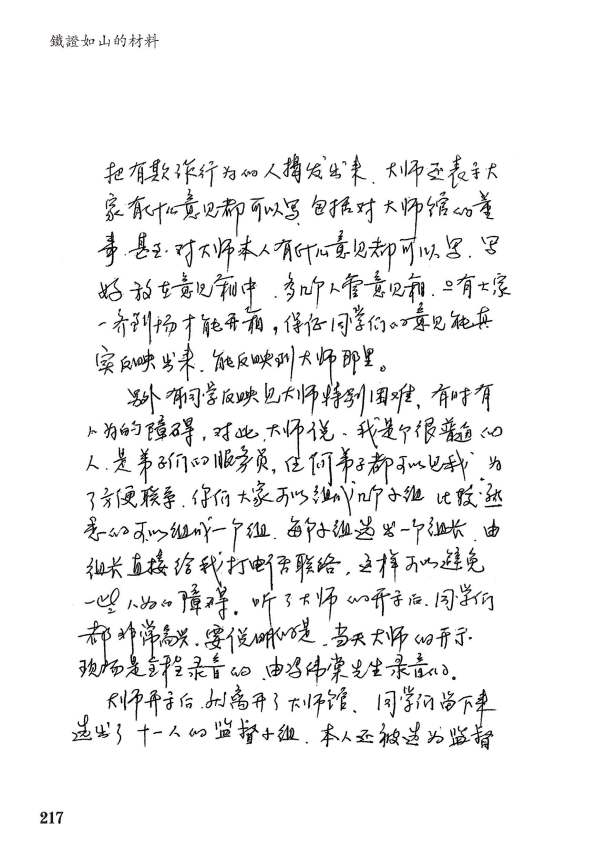 鐵證如山的材料
把有欺诈行为的人揭发出来、大师还表示大
家有什么意见都可以写，包括对大师馆的董
事，甚至对大师本人有什么意见都可以写．写
好放在意见箱中．多几个人管意见箱．只有大家
一齐到场才能开箱，保证同学们的意见能真
实反映出来．能反映到大师那里。
另外有同学反映见大师特别困难，有时有
人为的障碍，对此，大师说、我是个很普通的
人．是弟子们的服务员，任何弟子都可以见我 为
了方便联系．你们大家可以组成几个小组 比较熟
悉的可以组成一个组．每个小组选出一个组长．由
组长直接给我打电话联络，这样可以避免
一些人为的障碍。听了大师的开示后．同学们
都非常高兴．要说明的是．当天大师的开示
现场是全程录音的．由冯伟棠先生录音的。
大师开示后，就离开了大师馆、同学们留下来
选出了十一人的监督小组．本人还被选为监督
217